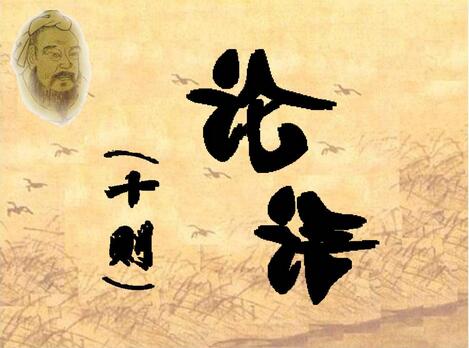 论语
（十则）